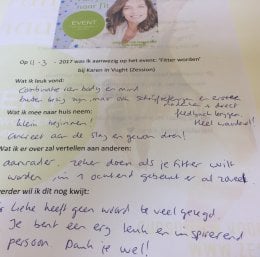 naar fit
EVENT
Op 11-3 - 2017 was ik aanwezig op het event: 'Fitter worden'
bij Karen in Vught (Zession)
Wat ik leuk vond:
Combinatie van body en mind
ieder krijg
Wat ik mee naar huis neem:
direct
feedback krijgen.
Heel waardevol!
klein beginnen!
concreet aan de slag en gewoon doen!
Wat ik er over zal vertellen aan anderen:
aanrader, zeker doen als je fitter wilt
worden, in 1 ochtend gebeurt er al zoveel.
erder wil ik dit nog kwijt:
Lieke heeft geen woord te veel gezegd.
Je bent een erg leuk en inspirerend
persoon. Dank je wel!